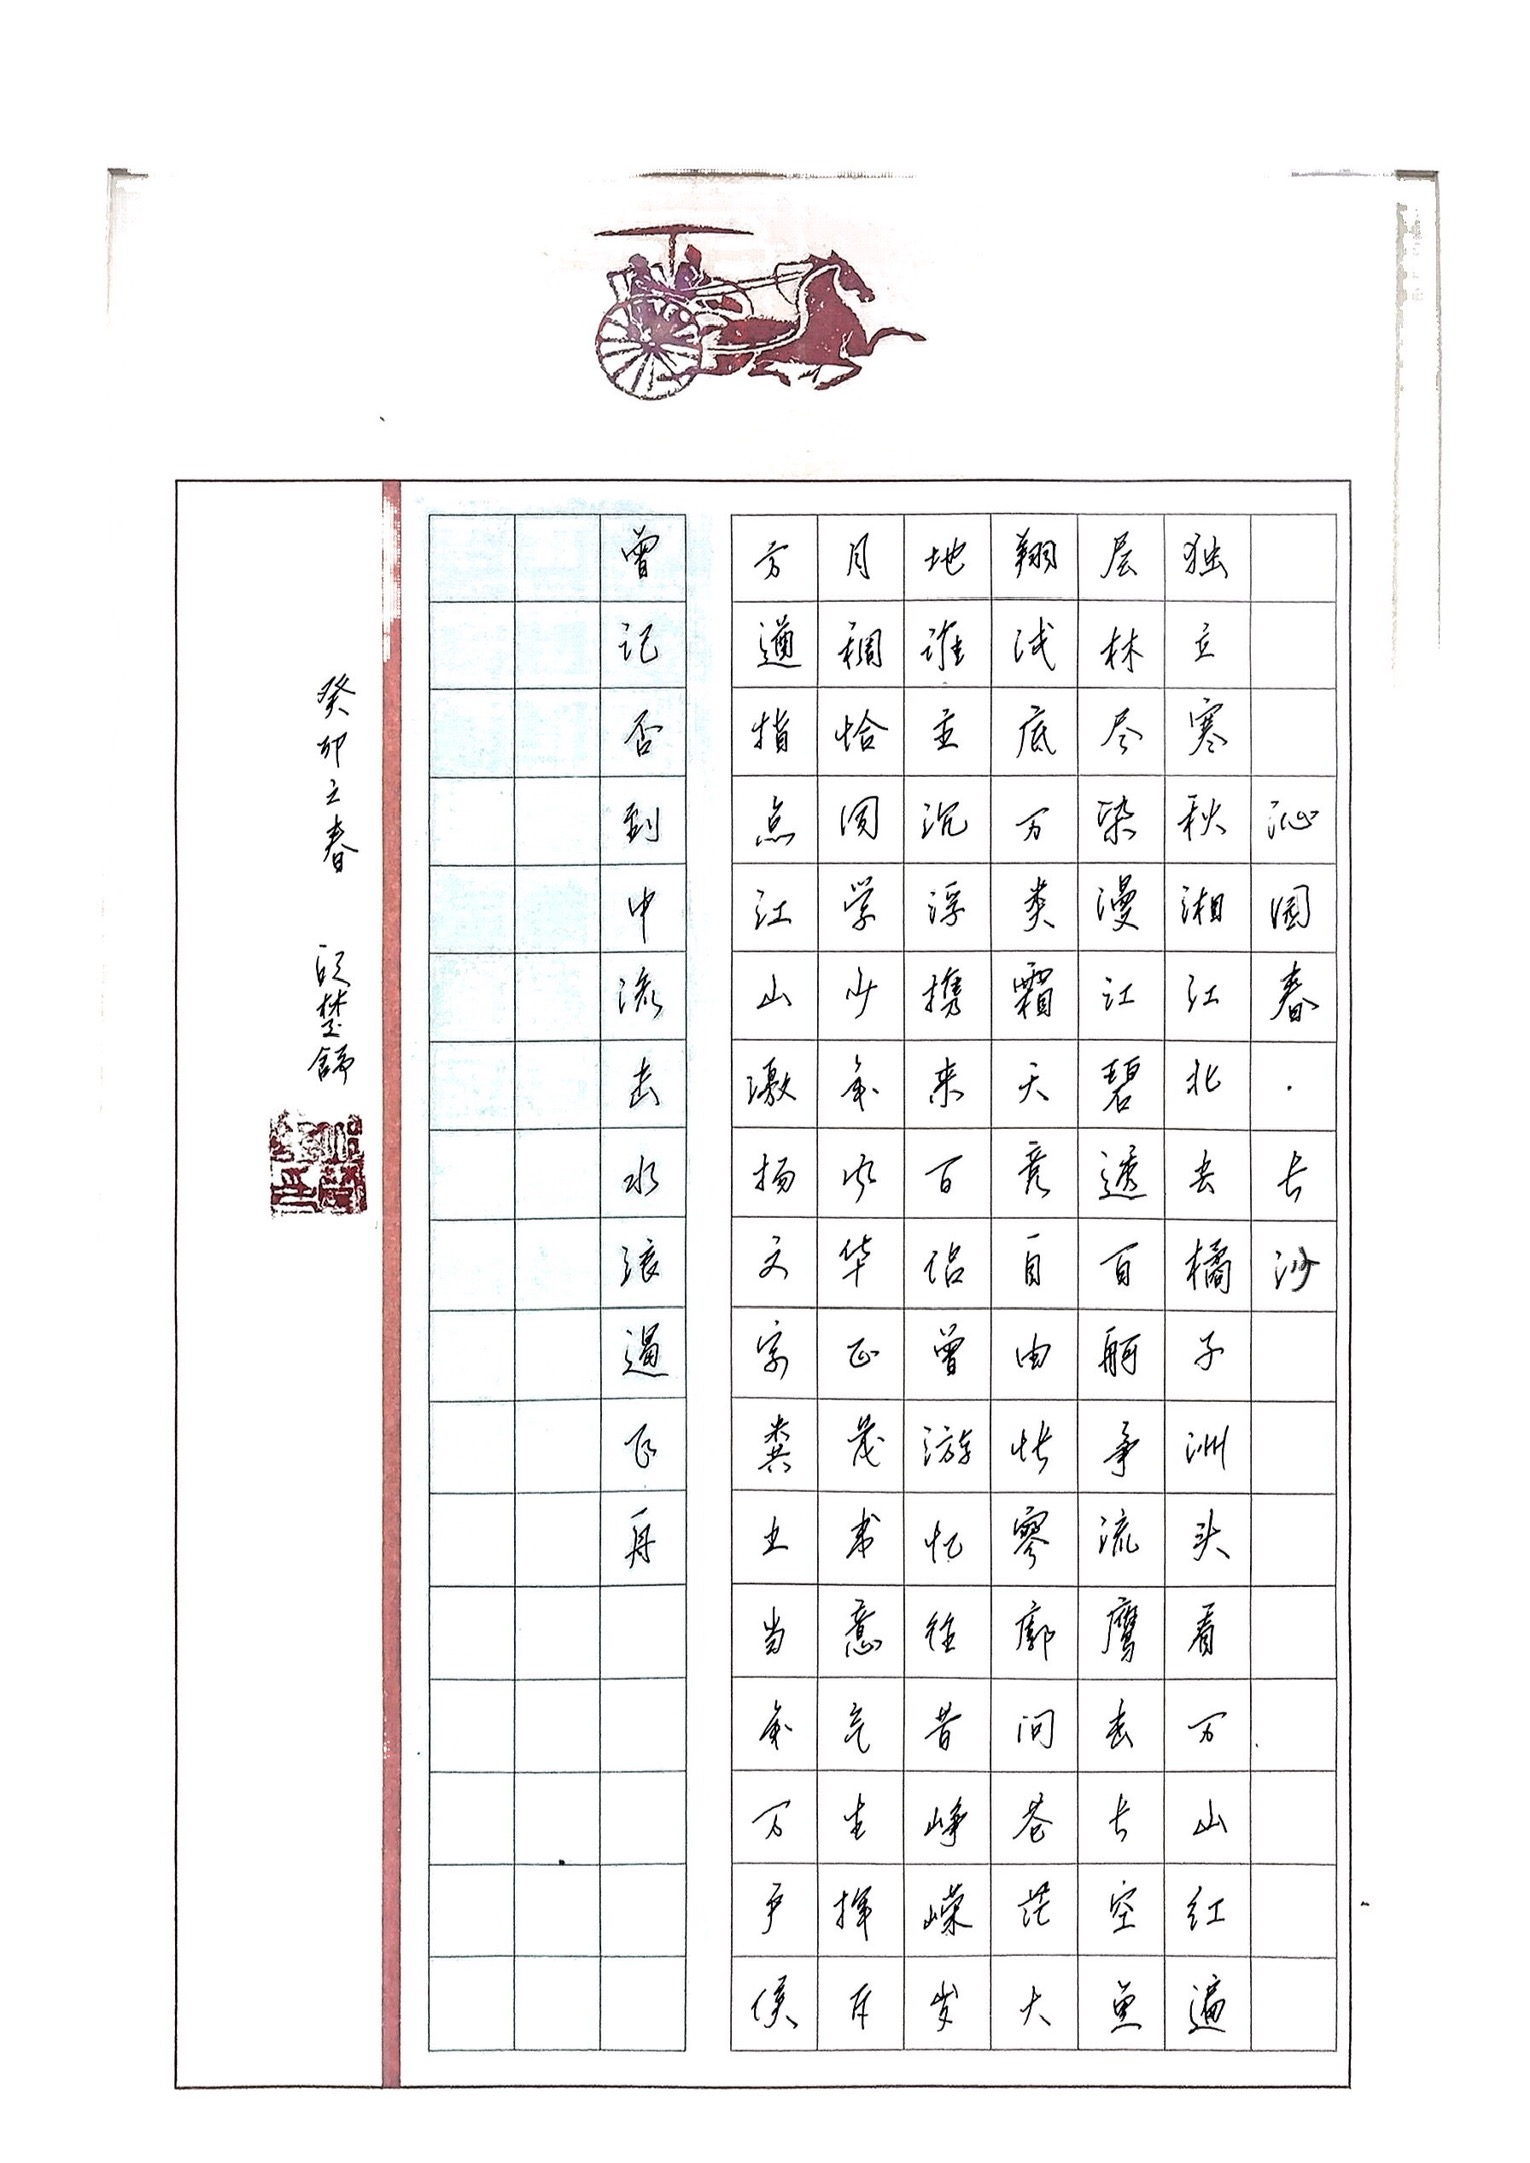 沁园春·长沙
独立寒秋湘江北去橘子洲头看万山红遍
层林尽染漫江碧透百舸争流鹰击长空鱼
翔浅底万类霜天竞自由怅寥廓问苍茫大
地谁主沉浮携来百侣曾游忆往昔峥嵘岁
月稠恰同学少年风华正茂书意气生挥斥
方遒指点江山激扬文字粪土当年万户侯
曾记否到中流击水浪遏飞舟
癸卯之春